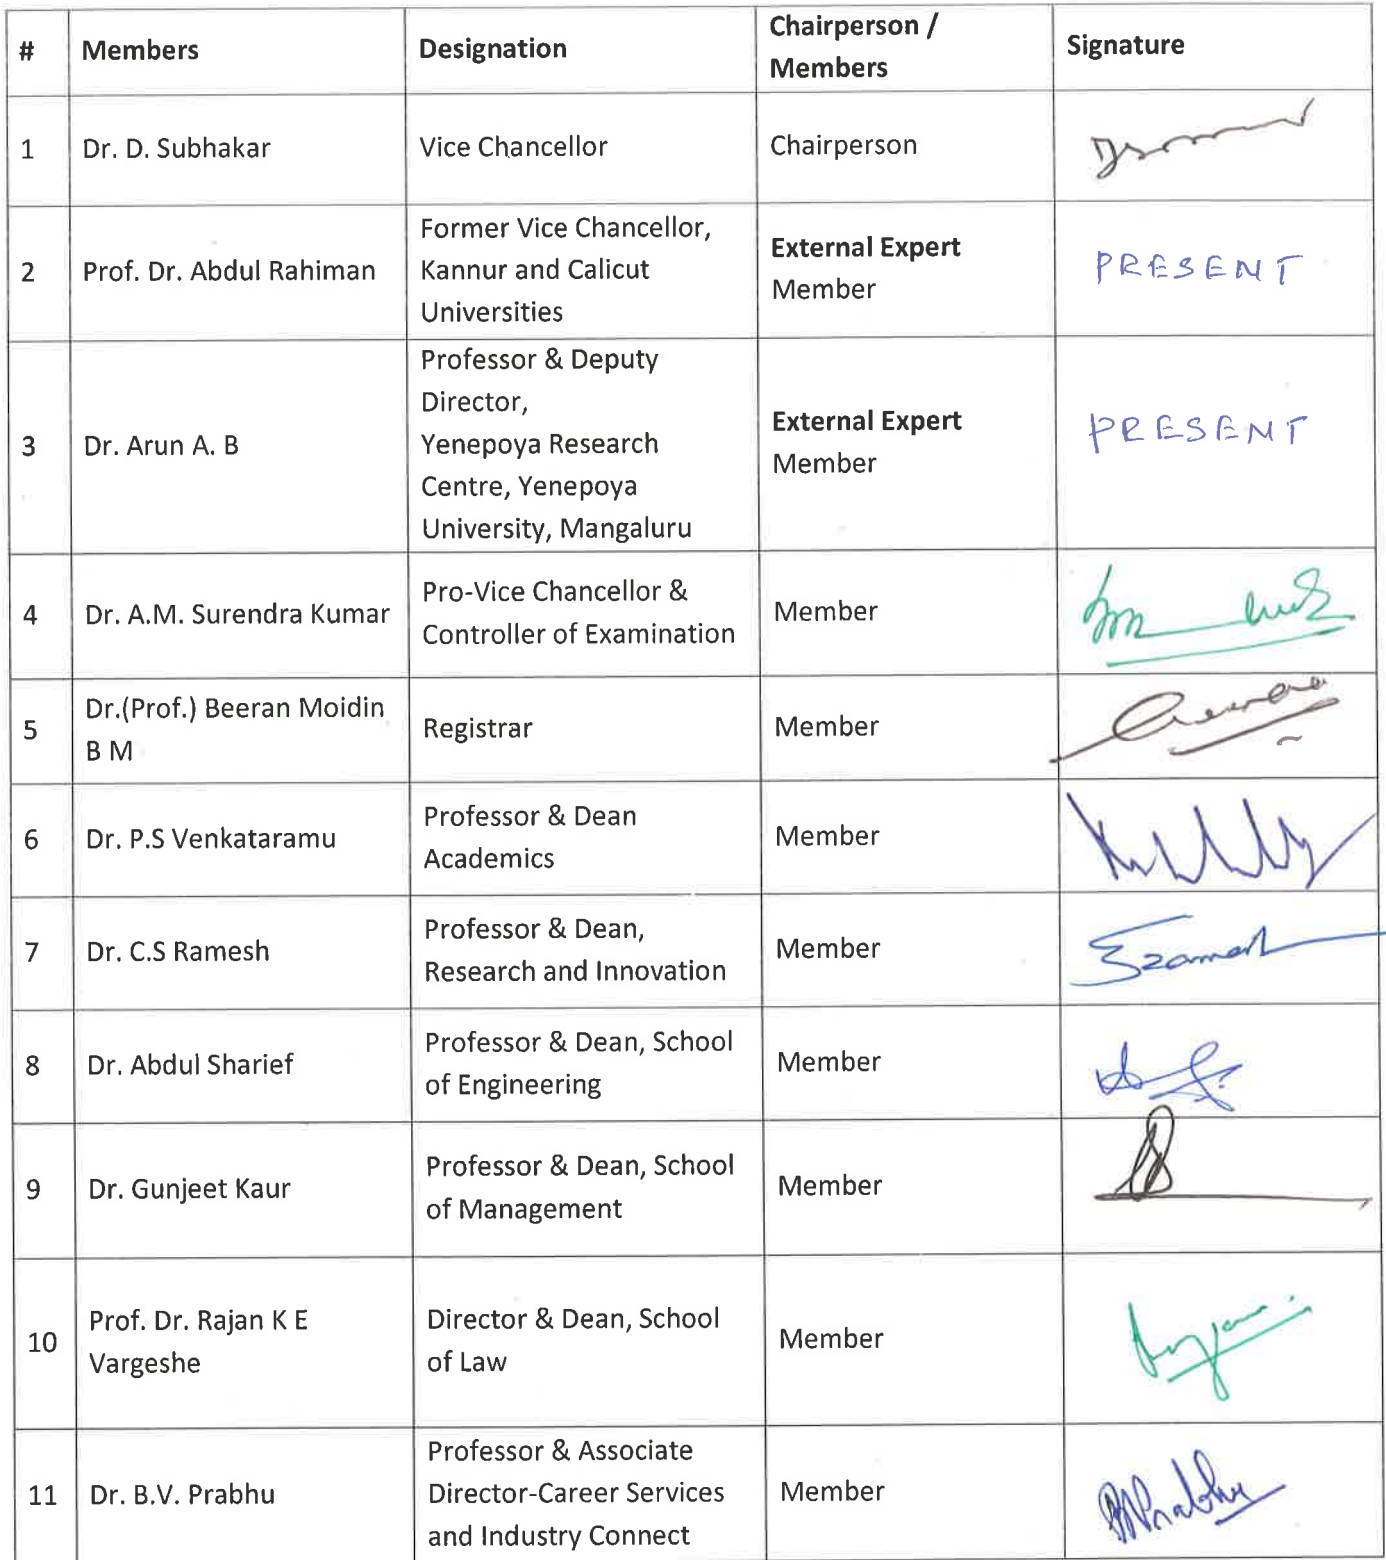 # Members Designation Chairperson / Members Signature
1 Dr. D. Subhakar Vice Chancellor Chairperson
2 Prof. Dr. Abdul Rahiman Former Vice Chancellor, Kannur and Calicut Universities External Expert Member PRESENT
3 Dr. Arun A. B Professor & Deputy Director, Yenepoya Research Centre, Yenepoya University, Mangaluru External Expert Member PRESENT
4 Dr. A.M. Surendra Kumar Pro-Vice Chancellor & Controller of Examination Member
5 Dr.(Prof.) Beeran Moidin B M Registrar Member
6 Dr. P.S Venkataramu Professor & Dean Academics Member
7 Dr. C.S Ramesh Professor & Dean, Research and Innovation Member
8 Dr. Abdul Sharief Professor & Dean, School of Engineering Member
9 Dr. Gunjeet Kaur Professor & Dean, School of Management Member
10 Prof. Dr. Rajan K E Vargeshe Director & Dean, School of Law Member
11 Dr. B.V. Prabhu Professor & Associate Director-Career Services and Industry Connect Member